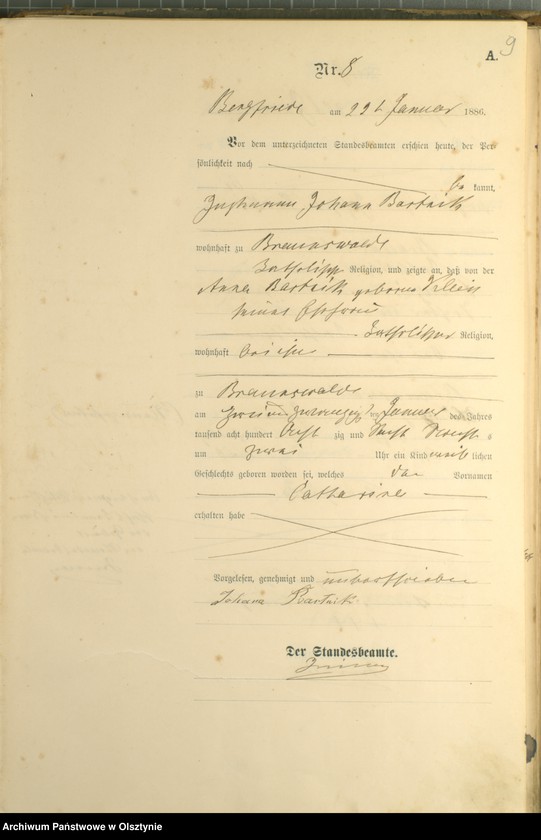 9
A.
Nr. 8
Bergfriede am 23t Januar 1886.
Vor dem unterzeichneten Standesbeamten erschien heute, der Per-
sönlichkeit nach
be kannt,
Johann Bartnik
wohnhaft zu Braunswalde
katholischer Religion, und zeigte an, daß von der
Anna Bartnik geborene Klein
seiner Ehefrau
katholischer Religion,
wohnhaft bei ihm
zu Braunswalde
am zwei und zwanzigsten Januar des Jahres
tausend acht hundert Acht zig und Sechs Nachmittags
um zwei Uhr ein Kind weib lichen
Geschlechts geboren worden sei, welches den Vornamen
Catharina
erhalten habe
Vorgelesen, genehmigt und unterschrieben
Johann Bartnik
Der Standesbeamte.
Archiwum Państwowe w Olsztynie